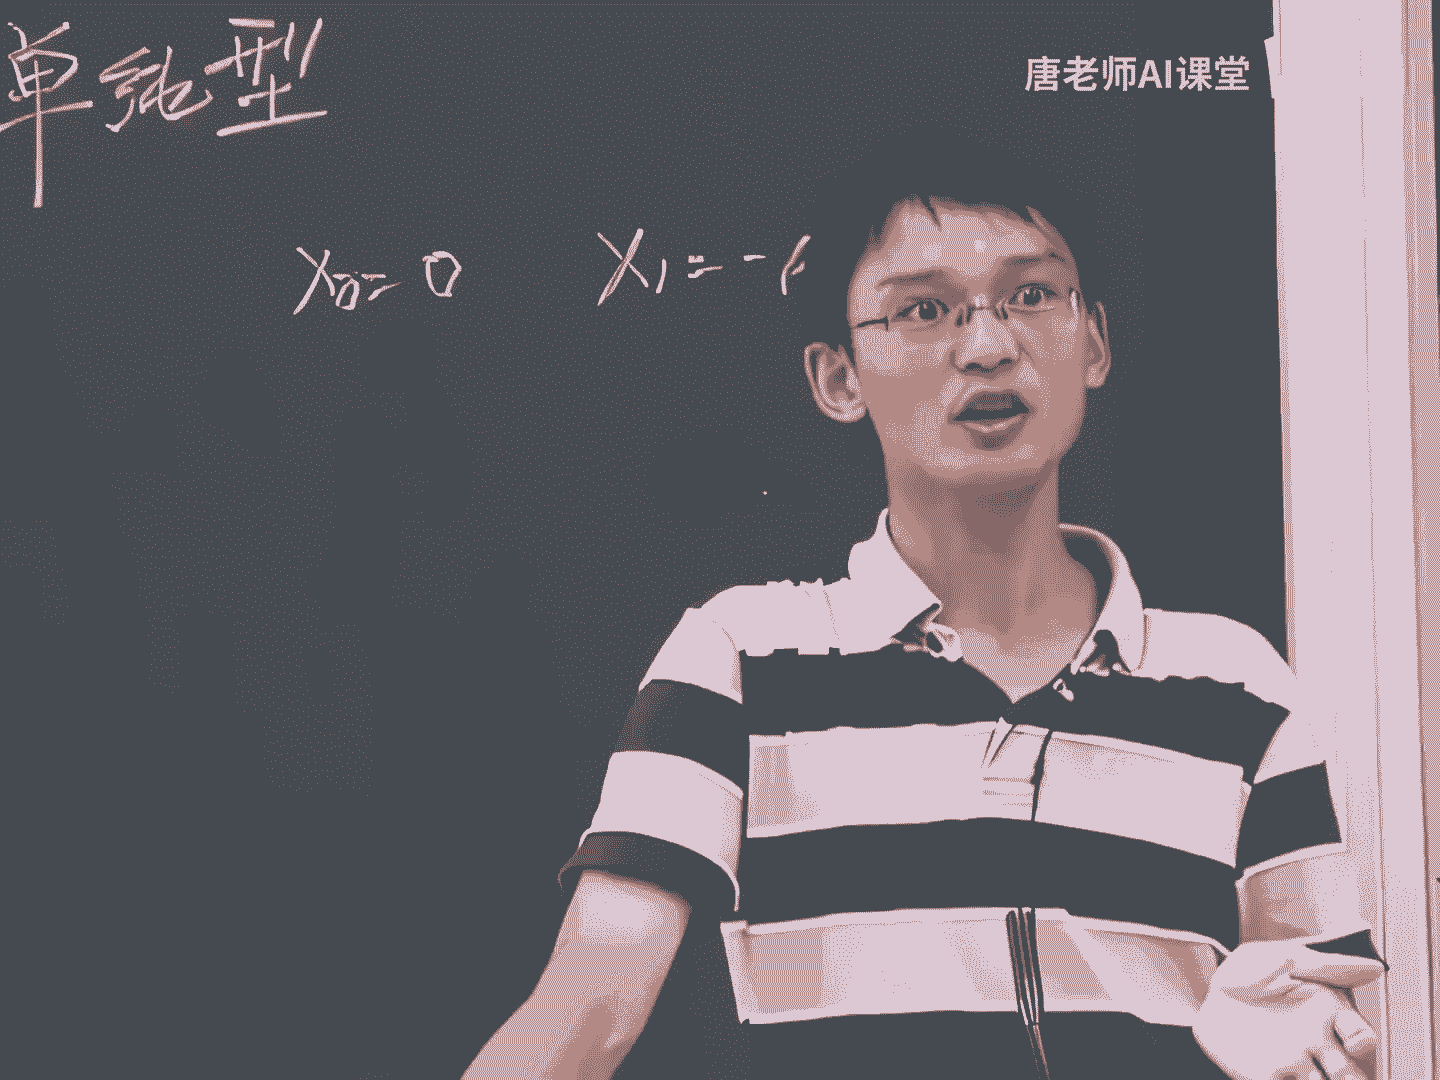 单纯型
唐老师AI课堂
X₀= 0 X₁= -